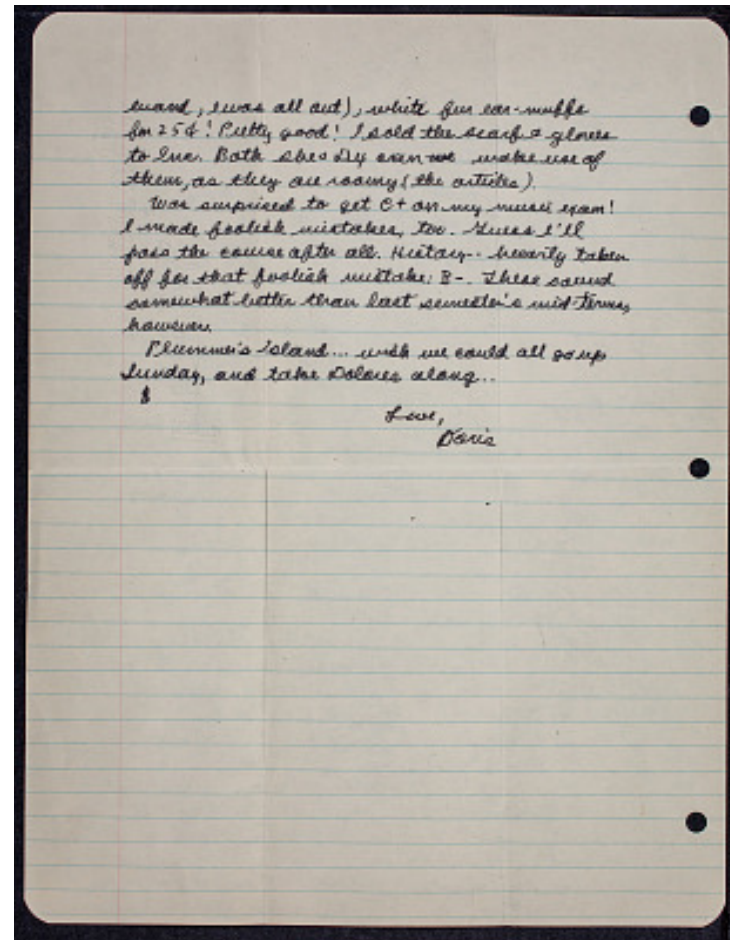 , was all out), white fur ear-muffs
for 25¢! Pretty good! I sold the scarf & gloves
to Inx. Both she & I can make use of
them, as they are roomy (the articles).
Was surprised to get C+ on my music exam!
I made foolish mistakes, too. Guess I'll
pass the course after all. History-- heavily taken
off for that foolish mistake: B-. These sound
somewhat better than last semester's mid-terms,
however.
Plummer's Island... wish we could all go up
Sunday, and take Dolores along...
Love,
Doris